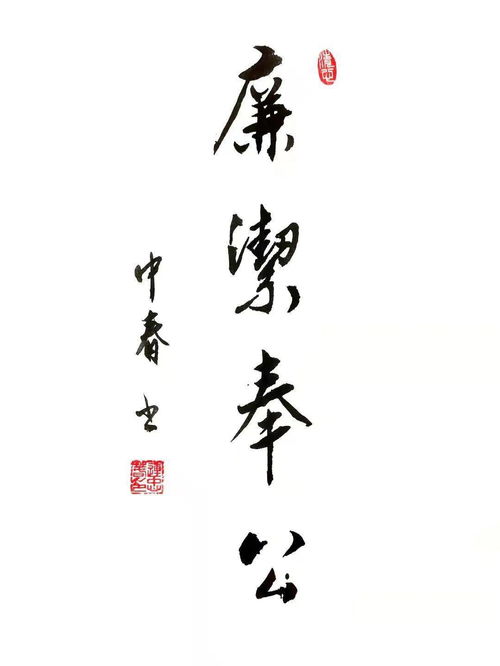 廉潔奉公
中春书